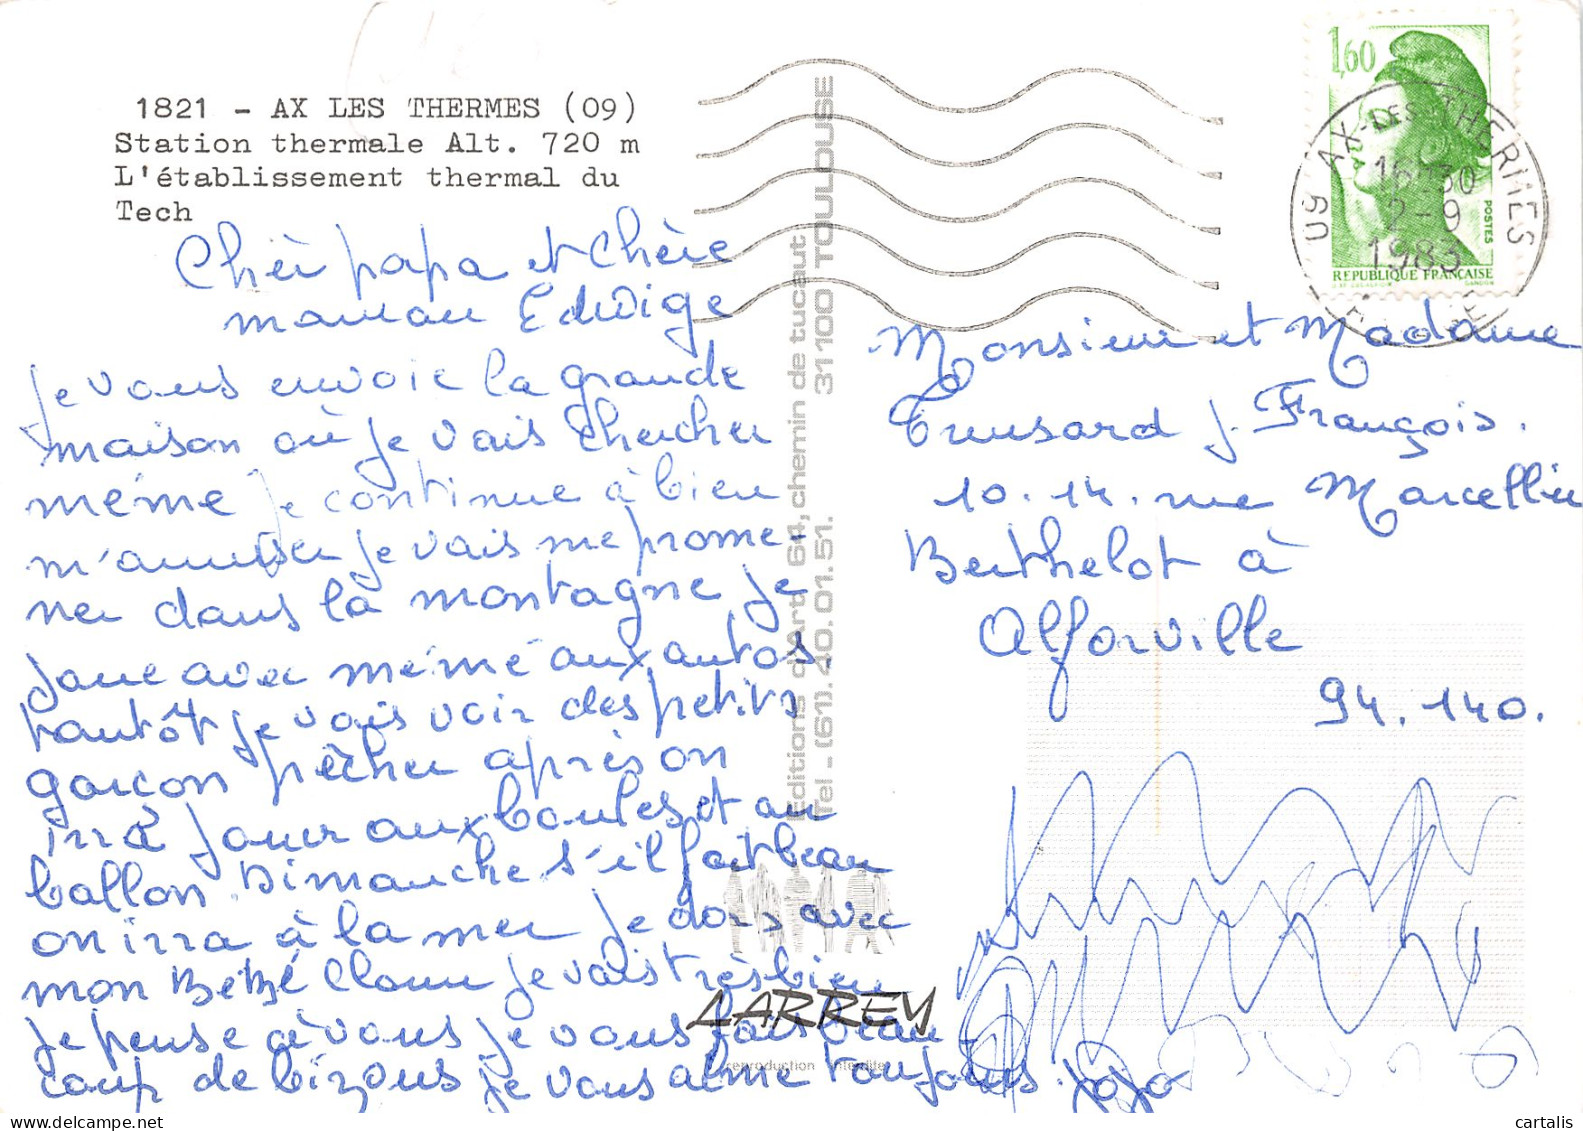 1821 - AX LES THERMES (09)
Station thermale Alt. 720 m
L'établissement thermal du
Tech
Chèr papa et chère
maman Edwige
je vous envoie la grande
maison où je vais chercher
mémé je continue à bien
m'amuser je vais me prome-
ner dans la montagne je
joue avec mémé aux autos,
tantôt je vais voir des petits
garçon pêcher après on
irra jouer aux boules et au
ballon. Dimanche s'il fait beau
on irra à la mer je dors avec
mon Bébé Clown je vais très bien
je pense à vous je vous fais beau
coup de bizous je vous aime toujours. jojo
Editions d'Art 64, chemin de tucaut
Tel - (61). 40. 01. 51. 31100 TOULOUSE
LARREY
reproduction interdite
1,60
POSTES
REPUBLIQUE FRANÇAISE
GANDON
09 AX-LES-THERMES
16H30
2-9
1983
Monsieur et Madame
Trussard J. François.
10.14. rue Marcellin
Berthelot à
Alforville
94.140.
cartalis
www.delcampe.net